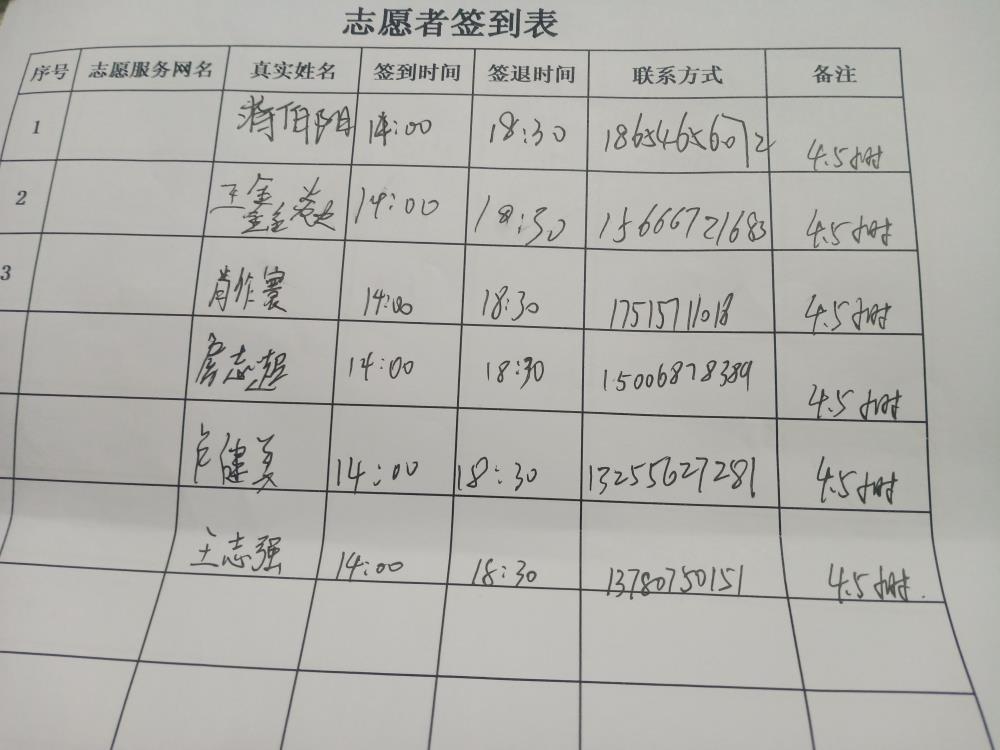 志愿者签到表
序号 志愿服务网名 真实姓名 签到时间 签退时间 联系方式 备注
1 蒋伯阳 14:00 18:30 18654656072 4.5小时
2 王鑫 14:00 18:30 15666721683 4.5小时
3 肖作寰 14:00 18:30 4.5小时
房志超 14:00 18:30 15006878389 4.5小时
卢健美 14:00 18:30 13255627281 4.5小时
王志强 14:00 18:30 13780750151 4.5小时.